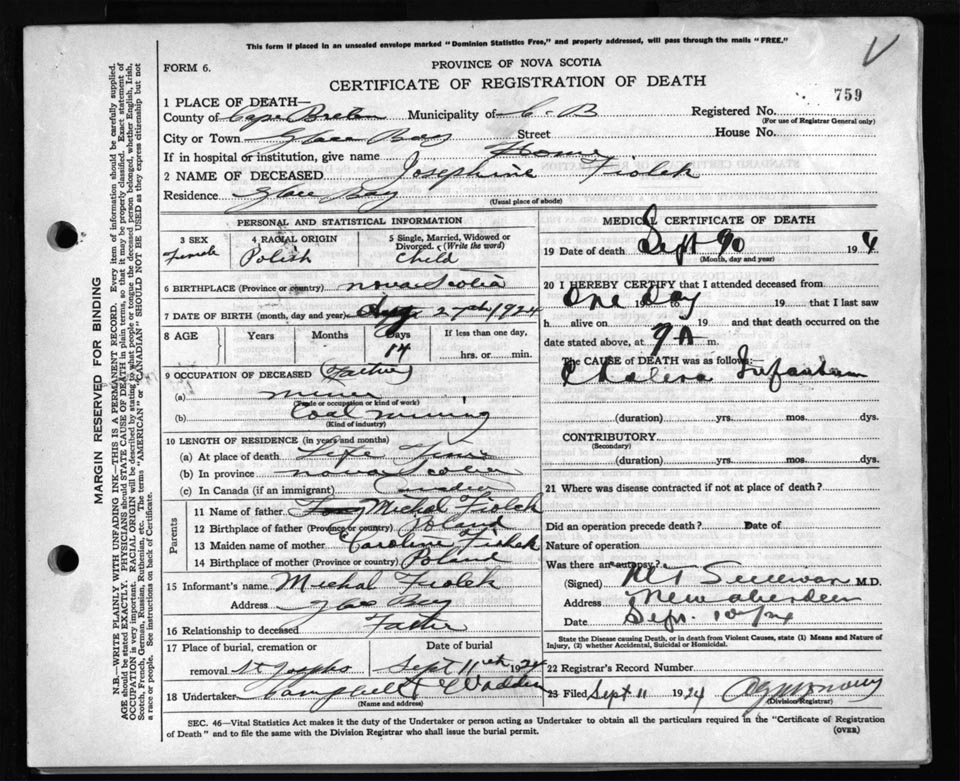 This form if placed in an unsealed envelope marked "Dominion Statistics Free," and properly addressed, will pass through the mails "FREE."
FORM 6.
PROVINCE OF NOVA SCOTIA
CERTIFICATE OF REGISTRATION OF DEATH
759
MARGIN RESERVED FOR BINDING
N.B.—WRITE PLAINLY WITH UNFADING INK—THIS IS A PERMANENT RECORD. Every item of information should be carefully supplied.
AGE should be stated EXACTLY. PHYSICIANS should STATE CAUSE OF DEATH in plain terms, so that it may be properly classified. Exact statement of
OCCUPATION is very important. RACIAL ORIGIN will be described by stating to what people or tongue the deceased person belonged, whether English, Irish,
Scotch, French, German, Russian, Ruthenian, etc. The terms "AMERICAN" or "CANADIAN" SHOULD NOT BE USED as they express citizenship but not
a race or people. See instructions on back of Certificate.
1 PLACE OF DEATH—
County of Cape Breton Municipality of C-B Registered No.
(For use of Registrar General only)
City or Town Glace Bay Street House No.
If in hospital or institution, give name Home
2 NAME OF DECEASED Josephine Fiolek
Residence Glace Bay
(Usual place of abode)
PERSONAL AND STATISTICAL INFORMATION
3 SEX Female
4 RACIAL ORIGIN Polish
5 Single, Married, Widowed or Divorced. (Write the word) Child
6 BIRTHPLACE (Province or country) Nova Scotia
7 DATE OF BIRTH (month, day and year) Aug 27th 1924
8 AGE Years Months Days 14 If less than one day, hrs. or min.
9 OCCUPATION OF DECEASED (Father)
(a) Miner
(Trade or occupation or kind of work)
(b) Coal Mining
(Kind of industry)
10 LENGTH OF RESIDENCE (in years and months)
(a) At place of death Life Time
(b) In province Nova Scotia
(c) In Canada (if an immigrant)
Parents
11 Name of father Michal Fiolek
12 Birthplace of father (Province or country) Poland
13 Maiden name of mother Caroline
14 Birthplace of mother (Province or country) Poland
15 Informant's name Michal Fiolek
Address Glace Bay
16 Relationship to deceased Father
17 Place of burial, cremation or removal St Josephs
Date of burial Sept 11th 1924
18 Undertaker Campbell & Wadden
(Name and address)
MEDICAL CERTIFICATE OF DEATH
19 Date of death Sept 192 4
(Month, day and year)
20 I HEREBY CERTIFY that I attended deceased from
One Day 19 to 19 that I last saw
h alive on 19 and that death occurred on
date stated above, at 9 A m.
The CAUSE of DEATH was as follows:
Cholera Infantum
(duration) yrs. mos. dys.
CONTRIBUTORY
(Secondary)
(duration) yrs. mos. dys.
21 Where was disease contracted if not at place of death?
Did an operation precede death? Date of
Nature of operation
Was there an autopsy?
(Signed) M T Sullivan M.D.
Address New Aberdeen
Date Sept. 10/24
State the Disease causing Death, or in death from Violent Causes, state (1) Means and Nature of
Injury, (2) whether Accidental, Suicidal or Homicidal.
22 Registrar's Record Number
23 Filed Sept 11 1924
(Division Registrar)
SEC. 46—Vital Statistics Act makes it the duty of the Undertaker or person acting as Undertaker to obtain all the particulars required in the "Certificate of Registration
of Death" and to file the same with the Division Registrar who shall issue the burial permit.
(OVER)